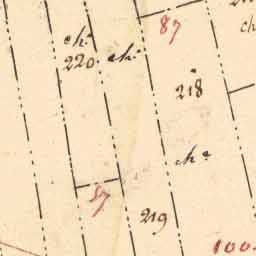 87
ch.ª
220. ch.
218
ch.ª
87
219
100.